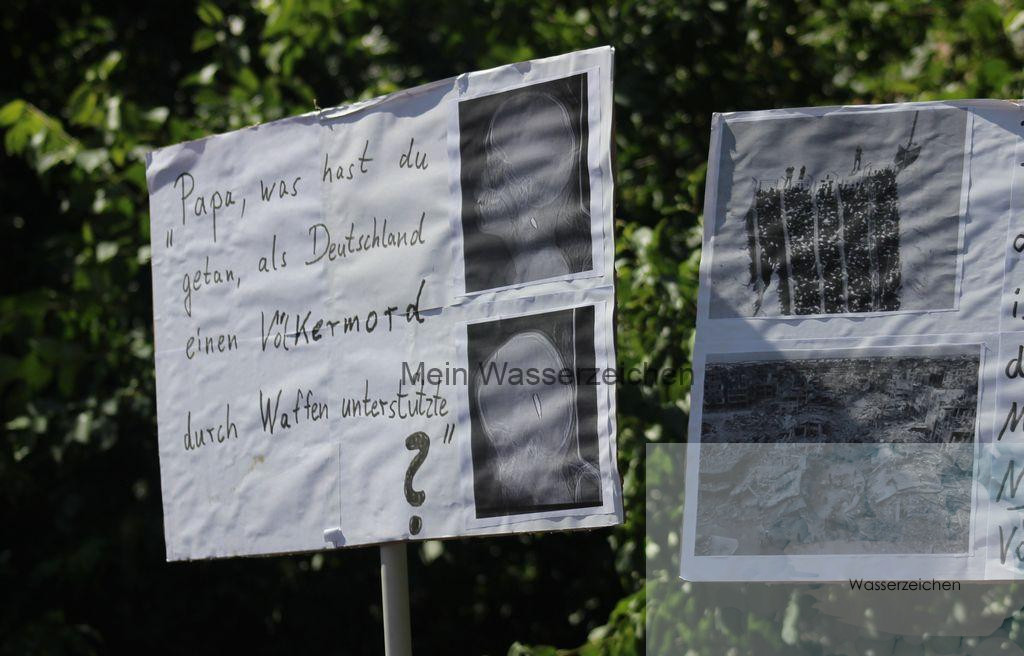 „Papa, was hast du
getan, als Deutschland
einen Völkermord
durch Waffen unterstützte"
?
Mein Wasserzeichen
Wasserzeichen